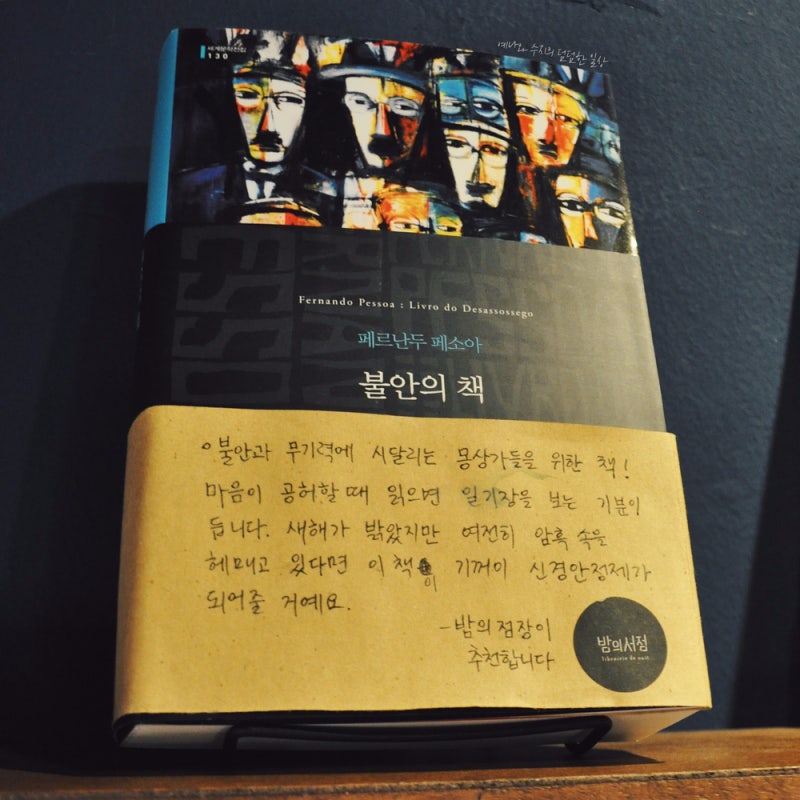 예나와 수지의 덤덤한 일상
세계문학전집
130
Fernando Pessoa : Livro do Desassossego
페르난두 페소아
불안의 책
불안과 무기력에 시달리는 몽상가들을 위한 책!
마음이 공허할 때 읽으면 일기장을 보는 기분이
듭니다. 새해가 밝았지만 여전히 암흑 속을
헤매고 있다면 이 책이 기꺼이 신경안정제가
되어줄 거예요.
-밤의 점장이
추천합니다
밤의서점
librairie de nuit